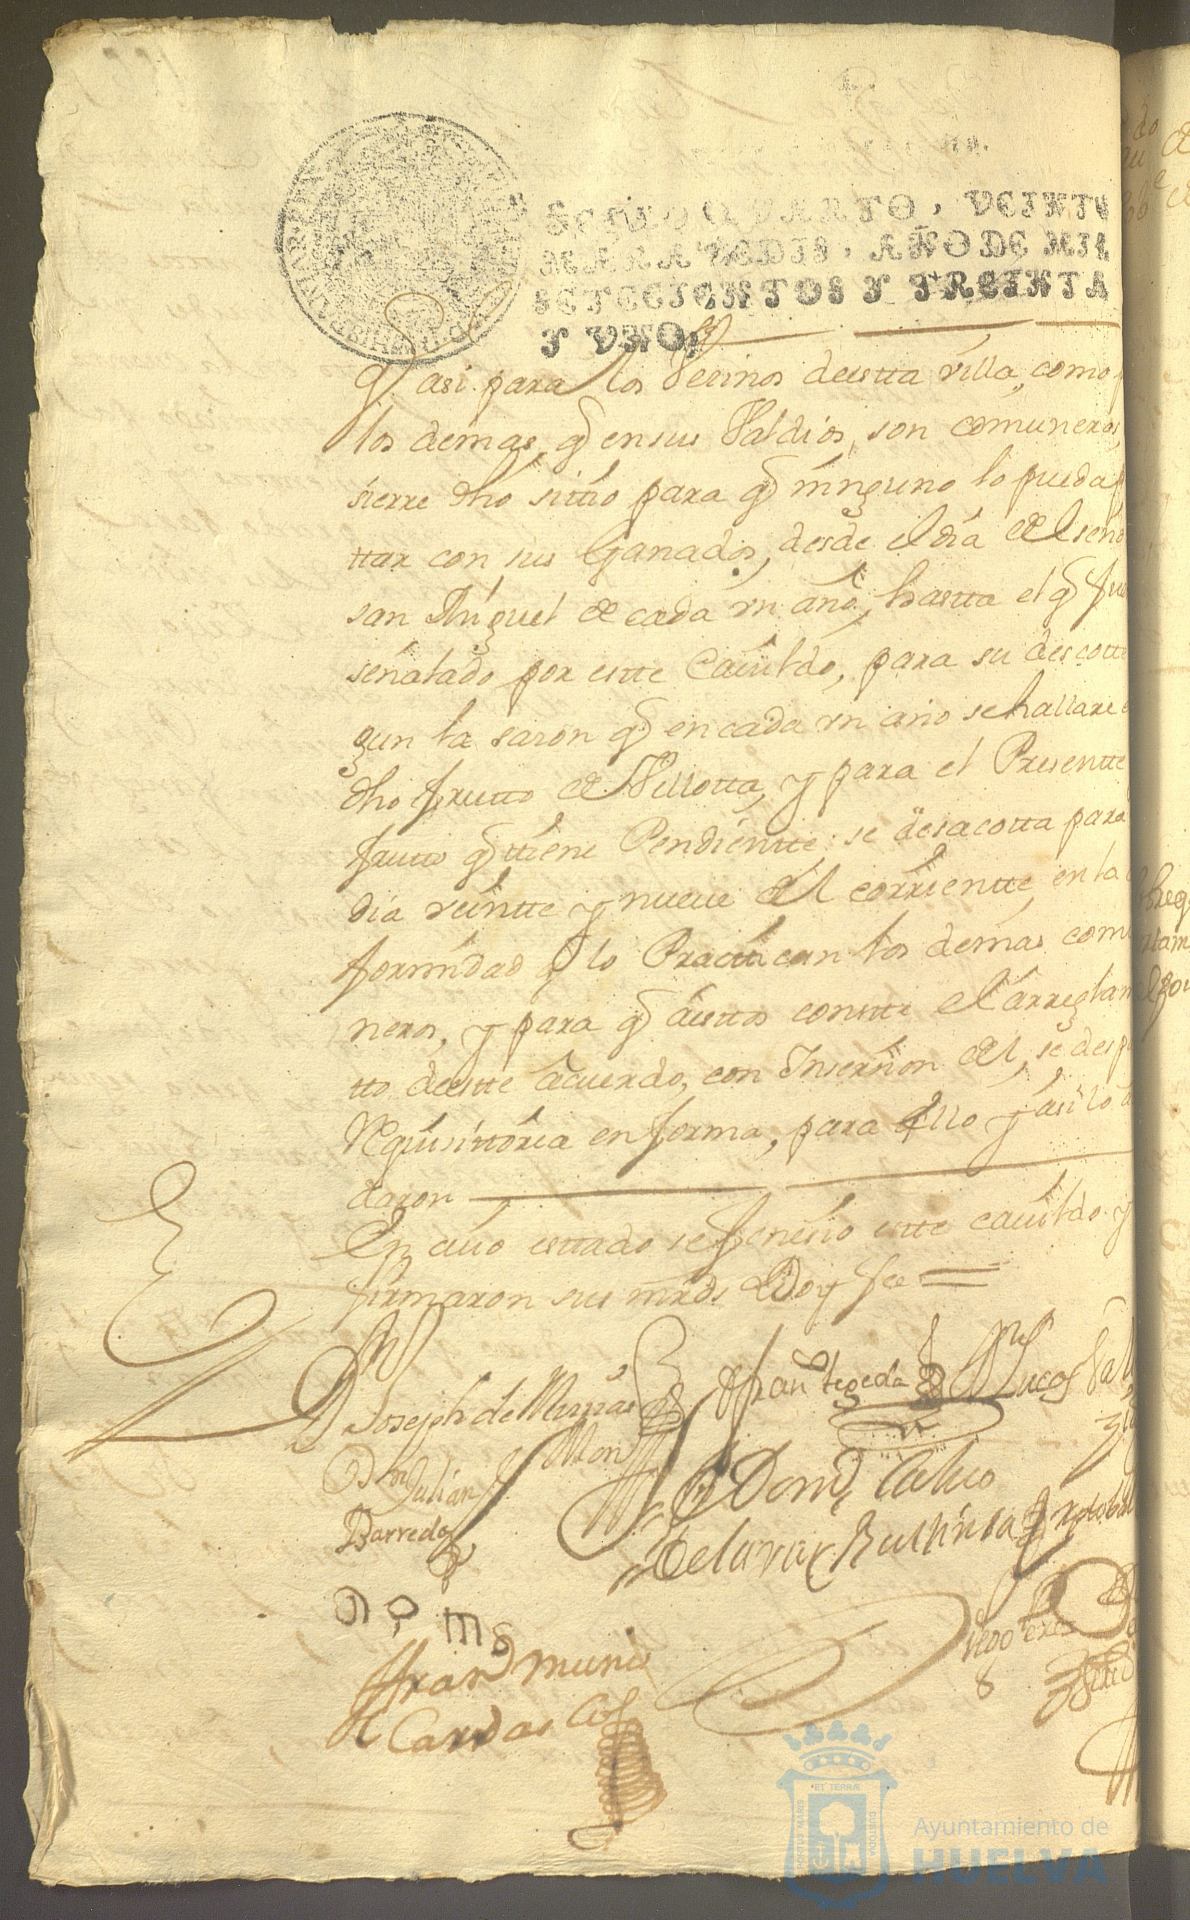 SELLO QVARTO, VEINTE
MARAVEDIS, AÑO DE MIL
SETECIENTOS Y TREINTA
Y VNO
q asi para los Vecinos decstta villa, como
los demas, q en sus Valdios, son comuneros,
sierre dho sittio para q ninguno lo pueda
ttar con sus Ganados, desde el dia del señ
san Miguel de cada vn año, hastta el q fu
señalado por estte Cauildo, para su descotte
gun la sazon q en cada vn año se hallare
dho frutto de Vellotta, y para el Presentte
frutto q ttiene Pendientte se desacotta para
dia veintte y nueue del corrientte, en la
formidad q lo Practtican los demas comu
neros, y para q a esttos constte el arreglam
tto destte acuerdo, con Inserzion del, se desp
Requisittoria en forma, para ello y asi lo a
daron
En cuio esttado se fenesio estte cauildo y
firmaron sus mrds Doy fee
D Joseph de
fran tegeda
Lucas
Dn Julian
Barreda
Domg Calvo
fran muni
Cardas
Ayuntamiento de
HUELVA